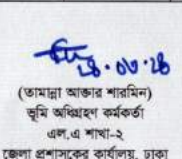 ২৪.০৬.২৪
(তামান্না আক্তার শারমিন)
ভূমি অধিগ্রহণ কর্মকর্তা
এল.এ শাখা-২
জেলা প্রশাসকের কার্যালয়, ঢাকা